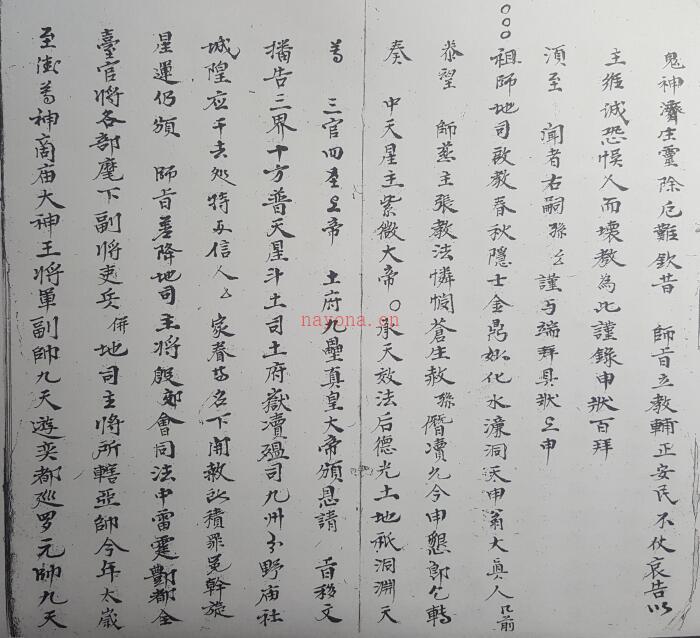 鬼神濟生靈除厄難欽昔　師旨立教輔正安民不仗哀告以
主維誠恐悞人而壞教為此謹錄申狀百拜
須至　聞者右嗣孫厶謹与端拜具狀上申
○○○祖師地司啟教春秋隱士金鼎妙化水濂洞天申翁大真人 口前
恭望　師慈主張教法憐憫蒼生赦孫僭瀆允今申懇即乞轉
奏　中天星主紫微大帝○承天效法后德光土地祇洞淵天
尊　三官四聖上帝　土府九壘真皇大帝頒恩請　旨移文
播告三界十方普天星斗土司土府嶽瀆瘟司九州分野庙社
城隍应干去处特与信人厶家眷等名下開赦所積罪冤斡旋
星運仍頒　師旨差降地司主將殷郊會同法中雷霆酆都全
臺官將各部麾下副將吏兵併地司主將所轄亞帥今年太歲
至德尊神商庙大神王將軍副帥九天遊奕都廵罗元帥九天
nayona.cn